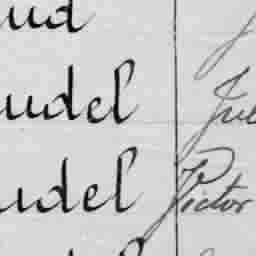 ud
udel Jul
udel Victor